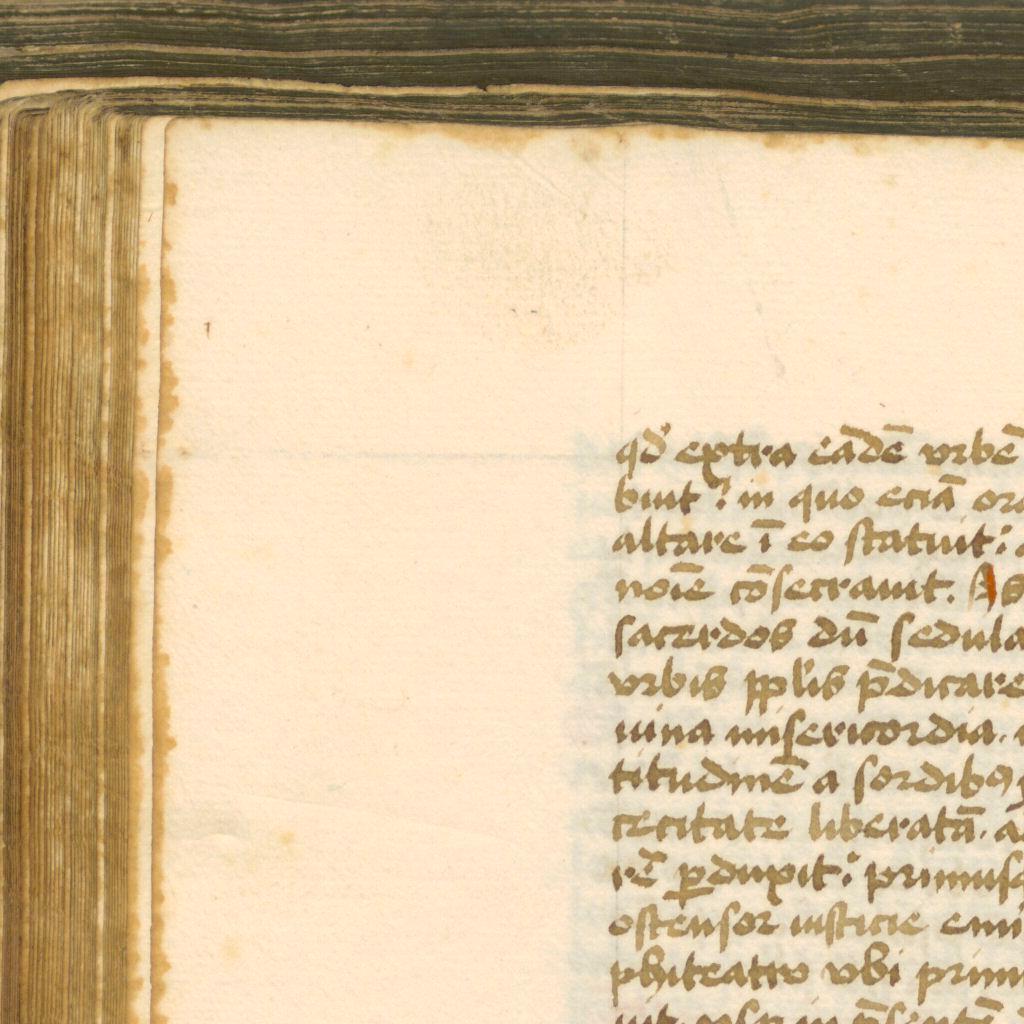 qd' extra eādē vrbē
buit: in quo eciā ora
altare ī eo statuit:
noīe cōsecrauit. As
sacerdos dū sedula
vrbis pplīs p̄dicare
uina misericordia.
titudinē a sordibꝯ
cecitate liberatā. a
rē ꝑduxit: primusq
ostensor iusticie emi
phiteatro vbi prim